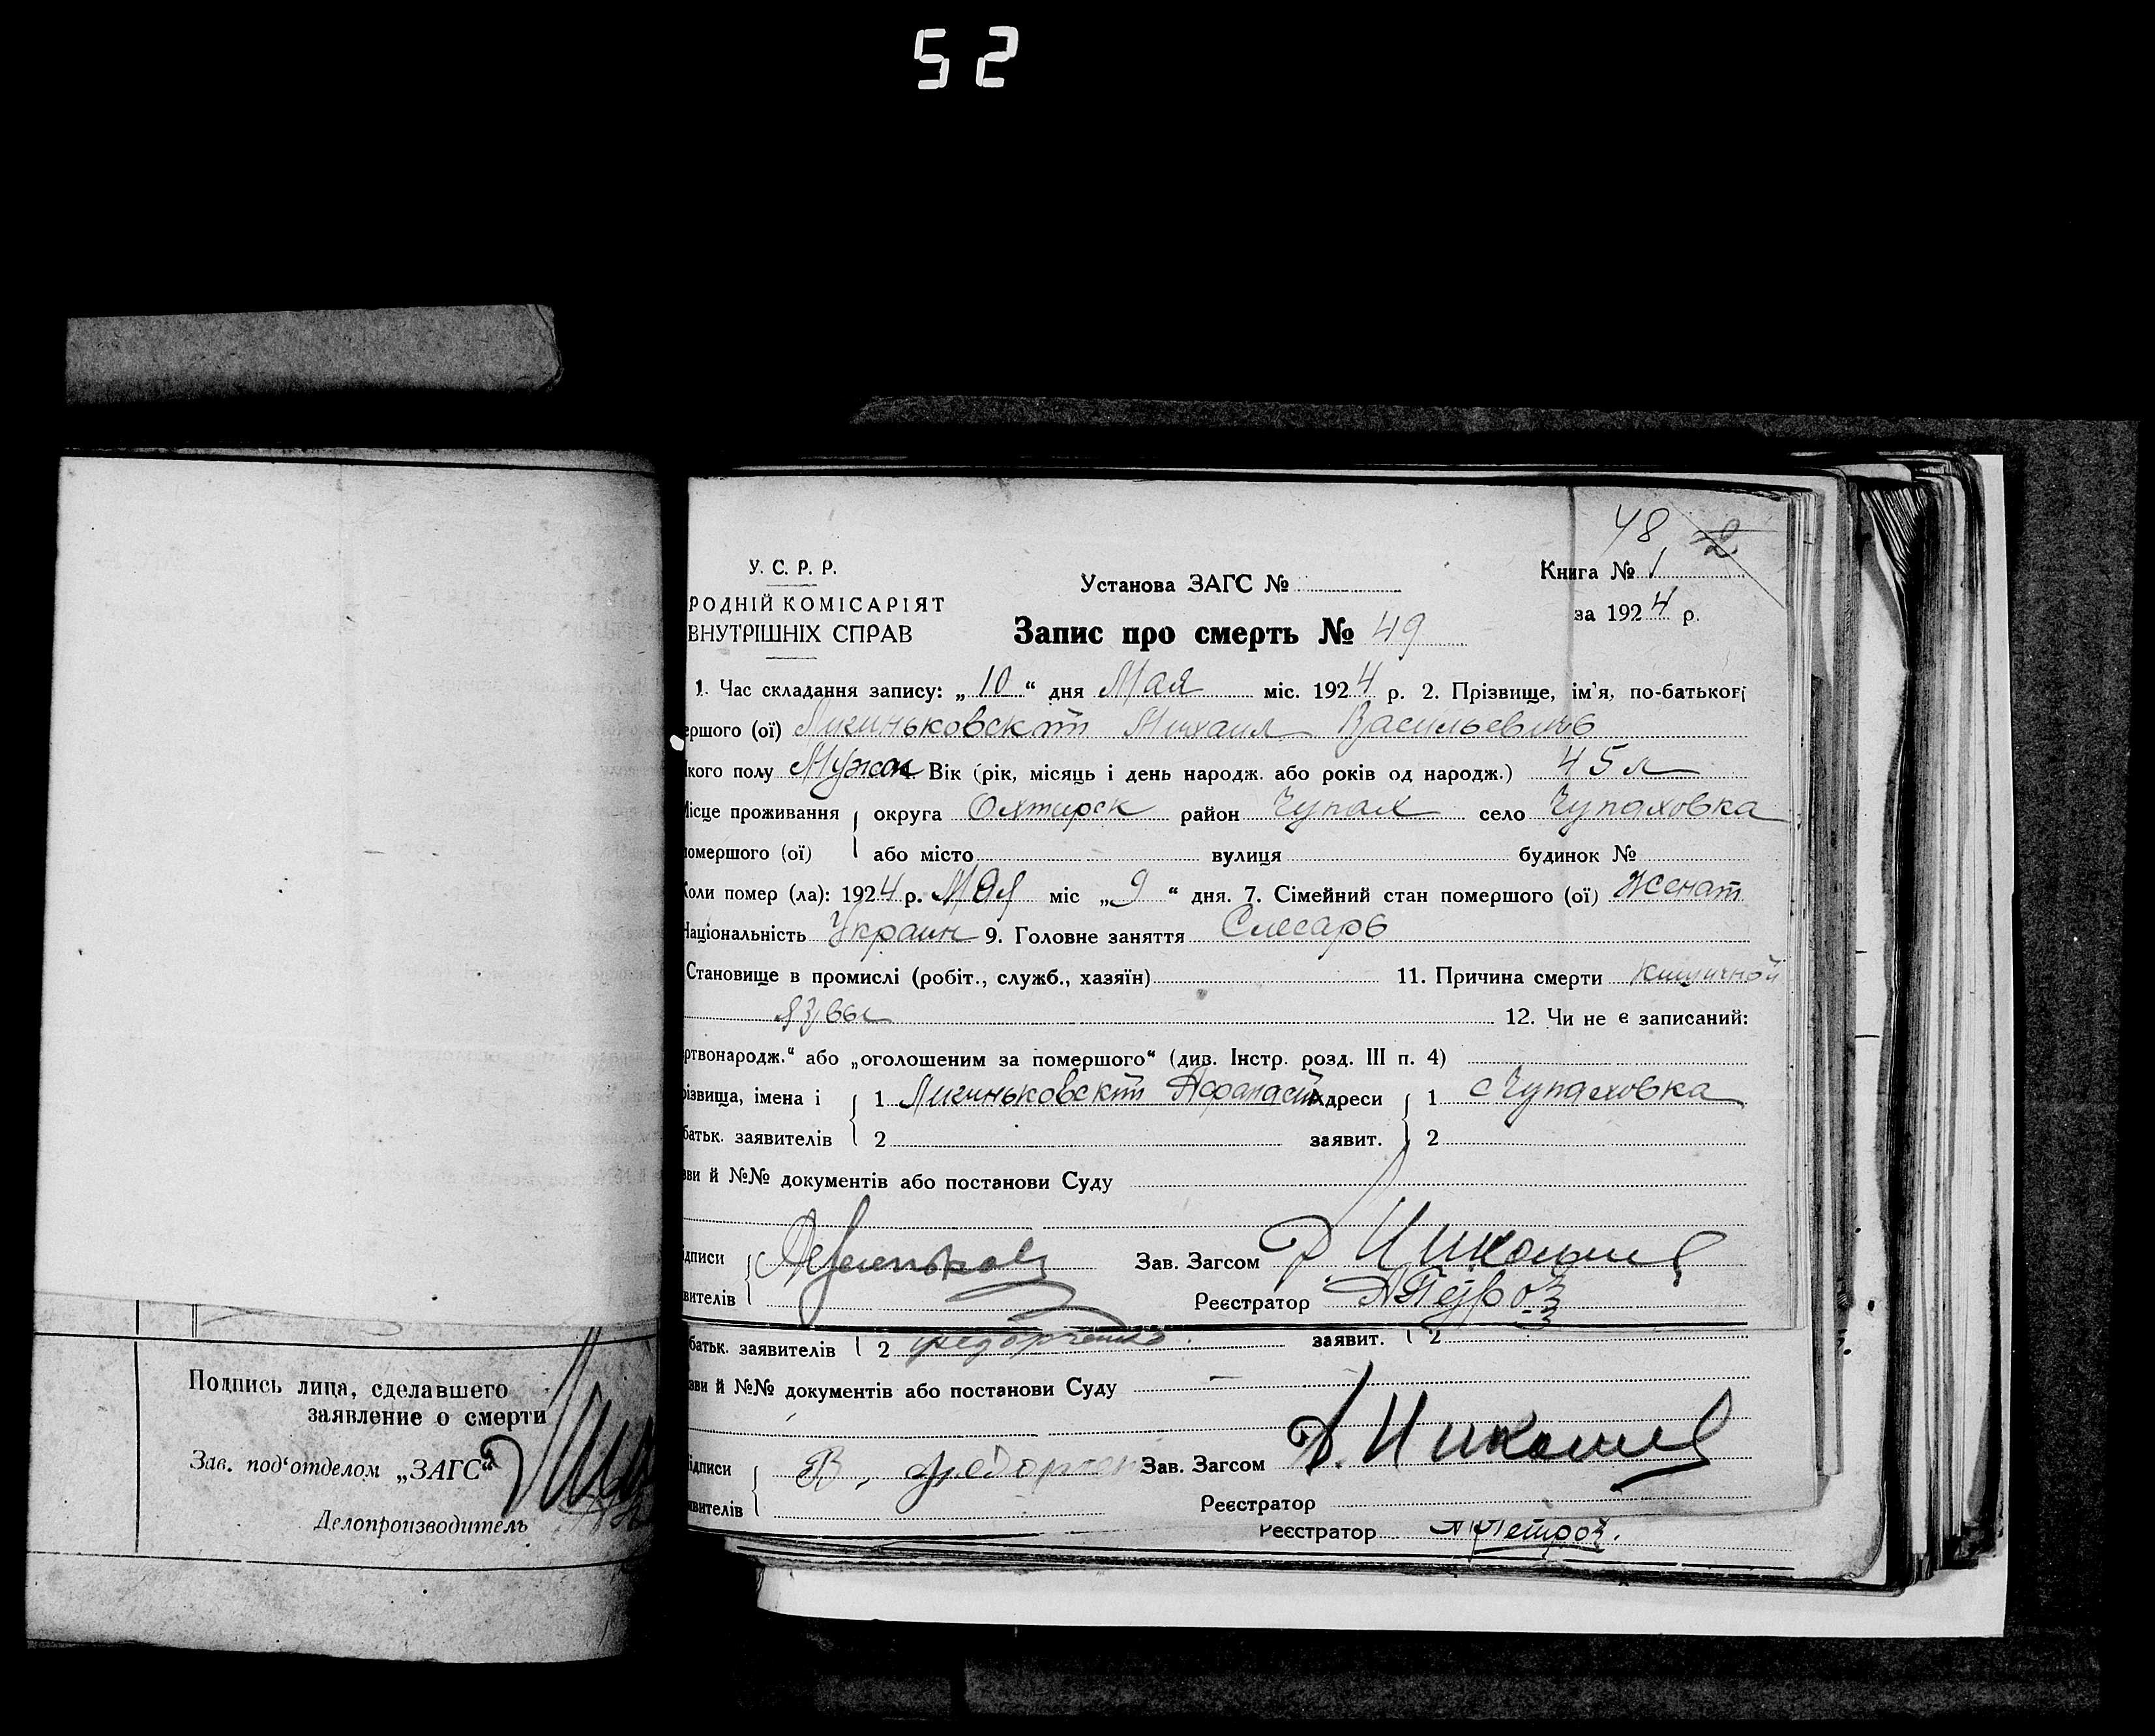 52
48 2
У. С. Р. Р.
РОДНІЙ КОМІСАРІЯТ
ВНУТРІШНІХ СПРАВ
Установа ЗАГС №
Книга № 1
за 1924 р.
Запис про смерть № 49
1. Час складання запису: „ 10 “ дня Мая міс. 1924 р. 2. Прізвище, ім’я, по-батькові
ершого (ої) Михаил Васильевичъ
кого полу Мужск Вік (рік, місяць і день народж. або років од народж.) 45 л
Місце проживання округа Охтирск район Чупах село Чупаховка
омершого (ої) або місто вулиця будинок №
Коли помер (ла): 1924 р. Мая міс „ 9 “ дня. 7. Сімейний стан помершого (ої) Женат
Національність Украин 9. Головне заняття Слесарь
Становище в промислі (робіт., служб., хазяїн) 11. Причина смерти кишичной
язвы
12. Чи не є записаний:
ртвонародж.“ або „оголошеним за помершого“ (див. Інстр. розд. III п. 4)
різвища, імена і 1 Афанасій Адреси 1 с Чупаховка
батьк. заявителів 2 заявит. 2
зви й №№ документів або постанови Суду
ідписи Зав. Загсом
вителів Реєстратор
батьк. заявителів 2 Федорченко заявит. 2
зви й №№ документів або постанови Суду
ідписи В. Федорченко Зав. Загсом
явителів Реєстратор
Реєстратор
Подпись лица, сделавшего
заявление о смерти
Зав. под‘отделом „ЗАГС“
Делопроизводитель